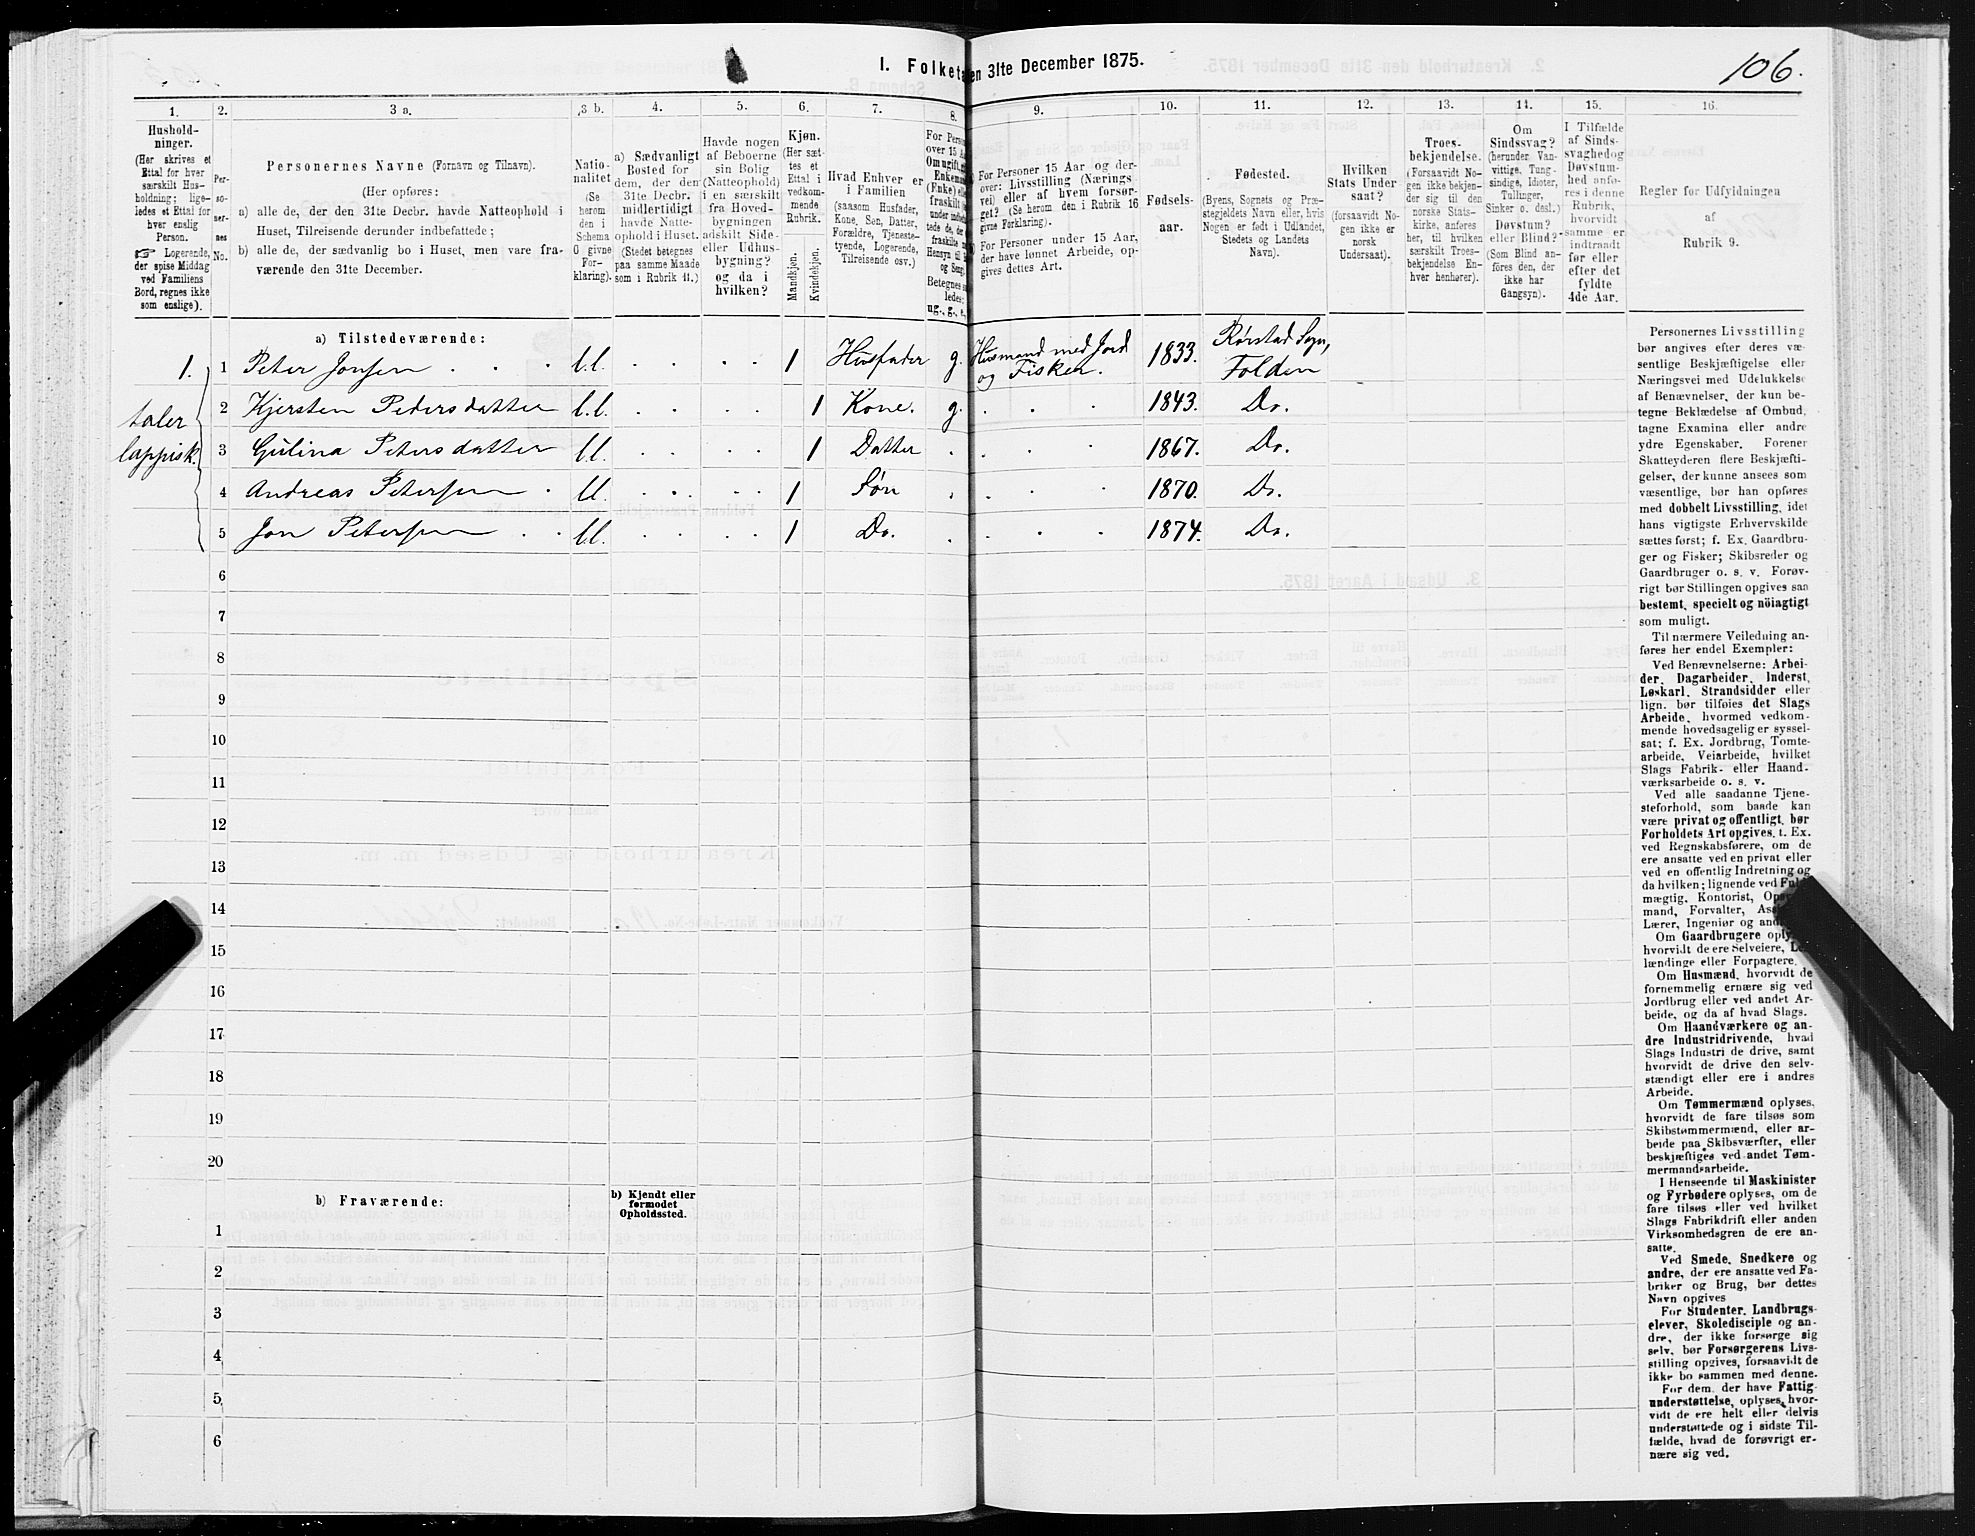 I. Folketa en 31te December 1875.
106.
1.
Hushold-
ninger.
(Her skrives et
Ettal for hver
særskilt Hus-
holdning; lige-
ledes et Ettal for
hver enslig
Person.
☞ Logerende,
der spise Middag
ved Familiens
Bord, regnes ikke
som enslige).
2.
Per-
so-
ner-
nes
No.
3 a.
Personernes Navne (Fornavn og Tilnavn).
(Her opføres:
a) alle de, der den 31te Decbr. havde Natteophold i
Huset, Tilreisende derunder indbefattede;
b) alle de, der sædvanlig bo i Huset, men vare fra-
værende den 31te December.
3 b.
Natio-
nalitet
(Se
herom
den i
Schema
G givne
For-
klaring).
4.
a) Sædvanligt
Bosted for
dem, der den
31te Decbr.
midlertidigt
havde Natte-
ophold i Huset.
(Stedet betegnes
paa samme Maade
som i Rubrik 11.)
5.
Havde nogen
af Beboerne
sin Bolig
(Natteophold)
i en særskilt
fra Hoved-
bygningen
adskilt Side-
eller Udhus-
bygning?
og da i
hvilken?
6.
Kjøn.
(Her sæt-
tes et
Ettal i
vedkom-
mende
Rubrik.
Mandkjøn.
Kvindekjøn.
7.
Hvad Enhver er
i Familien
(saasom Husfader,
Kone, Søn, Datter,
Forældre, Tjeneste-
tyende, Logerende,
Tilreisende osv.)
8.
For Perso
over 15 A
Om ugift,
Enkema
(Enke) el
fraskilt
under
tede de,
fraskilte
Hensyn til
og Seng
Betegnes
ledes:
ug., g., e.,
9.
a) For Personer 15 Aar og der-
over: Livsstilling (Nærings-
vei) eller af hvem forsør-
get? (Se herom den i Rubrik 16
givne Forklaring).
b) For Personer under 15 Aar,
der have lønnet Arbeide, op-
gives dettes Art.
10.
Fødsels-
aar.
11.
Fødested.
(Byens, Sognets og Præ-
stegjeldets Navn eller, hvis
Nogen er født i Udlandet,
Stedets og Landets
Navn).
12.
Hvilken
Stats Under
saat?
(forsaavidt No-
gen ikke er
norsk
Undersaat).
13.
Troes-
bekjendelse.
(Forsaavidt No-
gen ikke bekjen-
der sig til den
norske Stats-
kirke, anføres
her, til hvilken
særskilt Troes-
bekjendelse En-
hver henhører).
14.
Om
Sindssvag?
(herunder Van-
vittige, Tung-
sindige, Idioter,
Tullinger,
Sinker o. desl.)
Døvstum?
eller Blind?
(Som Blind an-
føres den, der
ikke har
Gangsyn).
15.
I Tilfælde
af Sinds-
svaghed og
Døvstum-
hed anfø-
res i denne
Rubrik,
hvorvidt
samme er
indtraadt
før eller
efter det
fyldte
4de Aar.
16.
Regler for Udfyldningen
af
Rubrik 9.
a) Tilstedeværende:
1. 1 Peter Jonsen l.l. 1 Husfader g. Husmand med Jord og Fisker. 1833. Rørstad Sogn, Folden
taler
lappisk.
2 Kjersten Pedersdatter l.l. 1 Kone. g. 1843. Do.
3 Gulina Petersdatter l.l. 1 Datter 1867. Do.
4 Andreas Petersen l.l. 1 Søn 1870. Do.
5 Jon Petersen l.l. 1 Do. 1874. Do.
6
7
8
9
10
11
12
13
14
15
16
17
18
19
20
b) Fraværende:
b) Kjendt eller
formodet
Opholdssted.
1
2
3
4
5
6
Personernes Livsstilling
bør angives efter deres væ-
sentlige Beskjæftigelse eller
Næringsvei med Udelukkelse
af Benævnelser, der kun be-
tegne Beklædelse af Ombud,
tagne Examina eller andre
ydre Egenskaber. Forener
Skatteyderen flere Beskjæfti-
gelser, der kunne ansees som
væsentlige, bør han opføres
med dobbelt Livsstilling, idet
hans vigtigste Erhvervskilde
sættes først; f. Ex. Gaardbru-
ger og Fisker; Skibsreder og
Gaardbruger o. s. v. Forøv-
rigt bør Stillingen opgives saa
bestemt, specielt og nöiagtigt
som muligt.
Til nærmere Veiledning an-
føres her endel Exempler:
Ved Benævnelserne: Arbei-
der, Dagarbeider, Inderst,
Løskarl, Strandsidder eller
lign. bør tilføies det Slags
Arbeide, hvormed vedkom-
mende hovedsagelig er syssel-
sat; f. Ex. Jordbrug, Tomte-
arbeide, Veiarbeide, hvilket
Slags Fabrik- eller Haand-
værksarbeide o. s. v.
Ved alle saadanne Tjene-
steforhold, som baade kan
være privat og offentligt, bør
Forholdets Art opgives, t. Ex.
ved Regnskabsførere, om de
ere ansatte ved en privat eller
ved en offentlig Indretning og
da hvilken; lignende ved Fuld
mægtig, Kontorist, Op
mand, Forvalter, As
Lærer, Ingeniør og and
Om Gaardbrugere oply
hvorvidt de ere Selveiere, Le
lændinge eller Forpagtere.
Om Husmænd, hvorvidt de
fornemmelig ernære sig ved
Jordbrug eller ved andet Ar-
beide, og da af hvad Slags.
Om Haandværkere og an-
dre Industridrivende, hvad
Slags Industri de drive, samt
hvorvidt de drive den selv-
stændigt eller ere i andres
Arbeide.
Om Tømmermænd oplyses,
hvorvidt de fare tilsøs som
Skibstømmermænd, eller ar-
beide paa Skibsværfter, eller
beskjæftiges ved andet Tøm-
mermandsarbeide.
I Henseende til Maskinister
og Fyrbødere oplyses, om de
fare tilsøs eller ved hvilket
Slags Fabrikdrift eller anden
Virksomhedsgren de ere an-
satte.
Ved Smede, Snedkere og
andre, der ere ansatte ved Fa-
briker og Brug, bør dettes
Navn opgives
For Studenter, Landbrugs-
elever, Skoledisciple og an-
dre, der ikke forsørge sig
selv, bør Forsørgerens Livs-
stilling opgives, forsaavidt de
ikke bo sammen med denne.
For dem, der have Fattig-
understøttelse, oplyses, hvor-
vidt de ere helt eller delvis
understøttede og i sidste Til-
fælde, hvad de forøvrigt er-
nære sig ved.